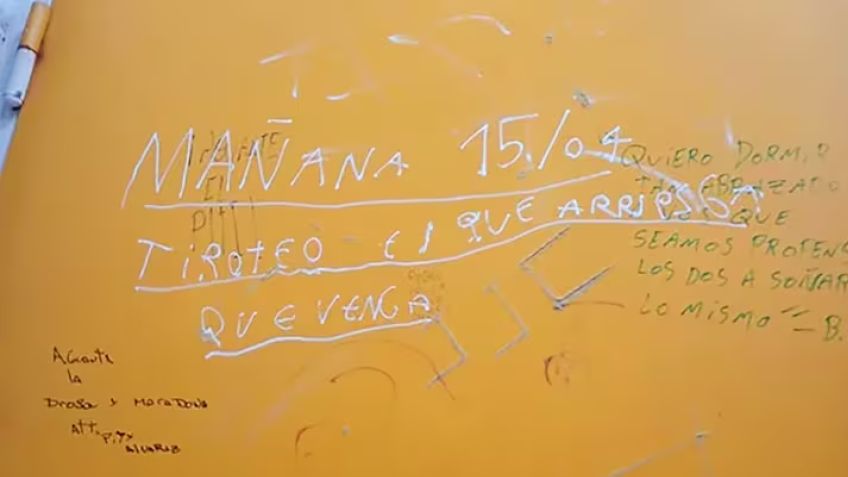 MAÑANA 15/04
TIROTEO EL QUE ARRIESGA
QUE VENGA
QUIERO DORMIR
TAN ABRAZADO
A VOS QUE
SEAMOS PROPENS
LOS DOS A SOÑAR
LO MISMO" - B.
Aguante
la
Droga y Maradona
Att
Pity
Alvarez